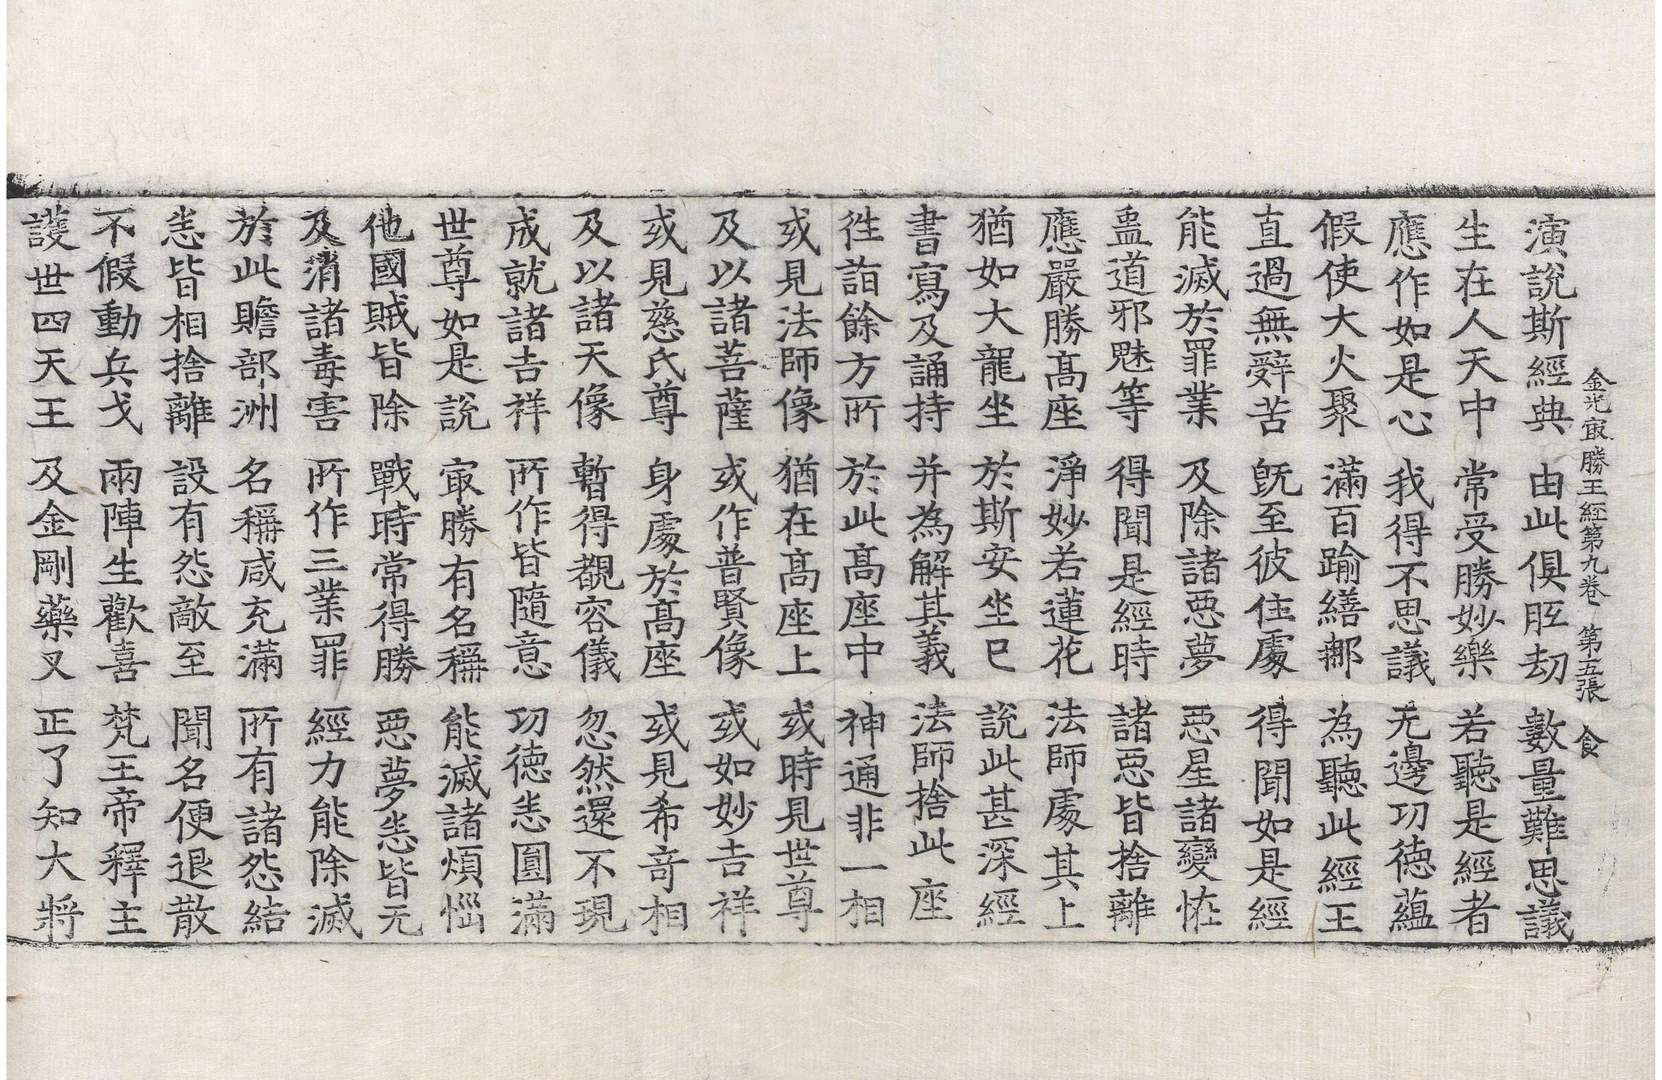 金光㝡勝王經第九卷 第五張 食
演說斯經典 由此俱胝劫 數量難思議
生在人天中 常受勝妙樂 若聽是經者
應作如是心 我得不思議 无邊功德蘊
假使大火聚 滿百踰繕那 為聽此經王
直過無辤苦 旣至彼住處 得聞如是經
能滅於罪業 及除諸惡夢 惡星諸變恠
蠱道邪魅等 得聞是經時 諸惡皆捨離
應嚴勝髙座 淨妙若蓮花 法師處其上
猶如大龍坐 於斯安坐已 說此甚深經
書寫及誦持 并為解其義 法師捨此座
徃詣餘方所 於此髙座中 神通非一相
或見法師像 猶在髙座上 或時見世尊
及以諸菩薩 或作普賢像 或如妙吉祥
或見慈氏尊 身處於髙座 或見希竒相
及以諸天像 暫得覩容儀 忽然還不現
成就諸吉祥 所作皆隨意 功德悉圓滿
世尊如是說 㝡勝有名稱 能滅諸煩惱
他國賊皆除 戰時常得勝 惡夢悉皆无
及消諸毒害 所作三業罪 經力能除滅
於此贍部洲 名稱咸充滿 所有諸怨結
悉皆相捨離 設有怨敵至 聞名便退散
不假動兵戈 兩陣生歡喜 梵王帝釋主
護世四天王 及金剛藥叉 正了知大將